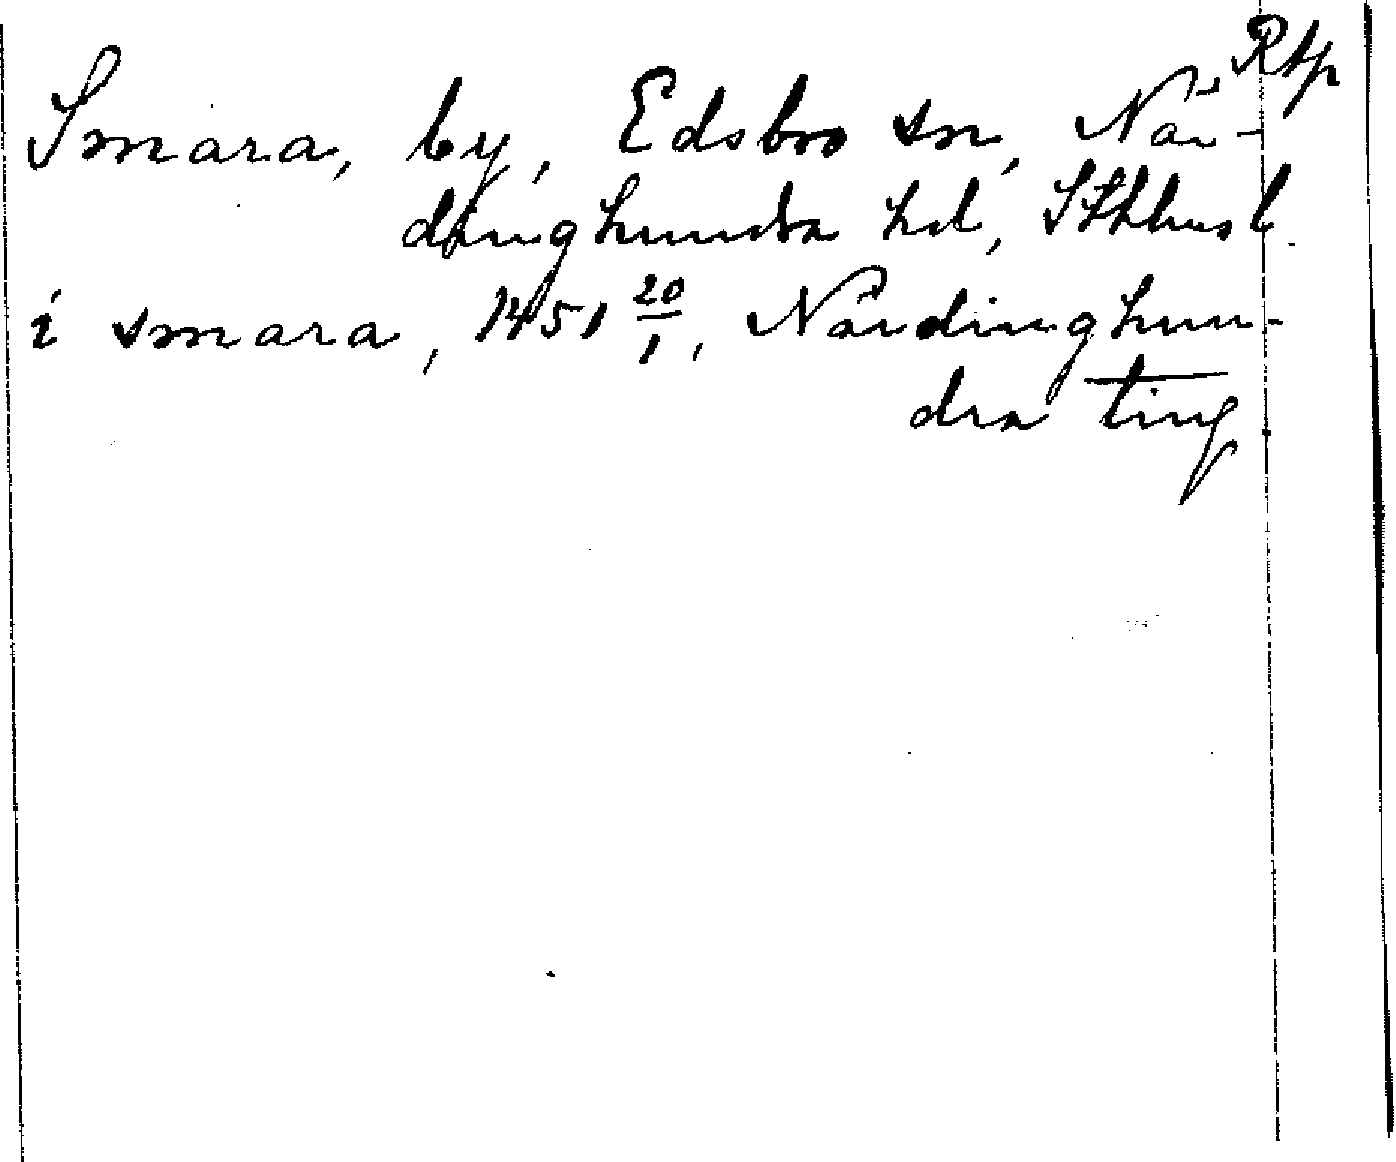 Rtp
Smara, by, Edsbro sn, När-
dinghundra hd, Sthlms l.
i smara, 1451 20/1, Närdinghun-
dra ting